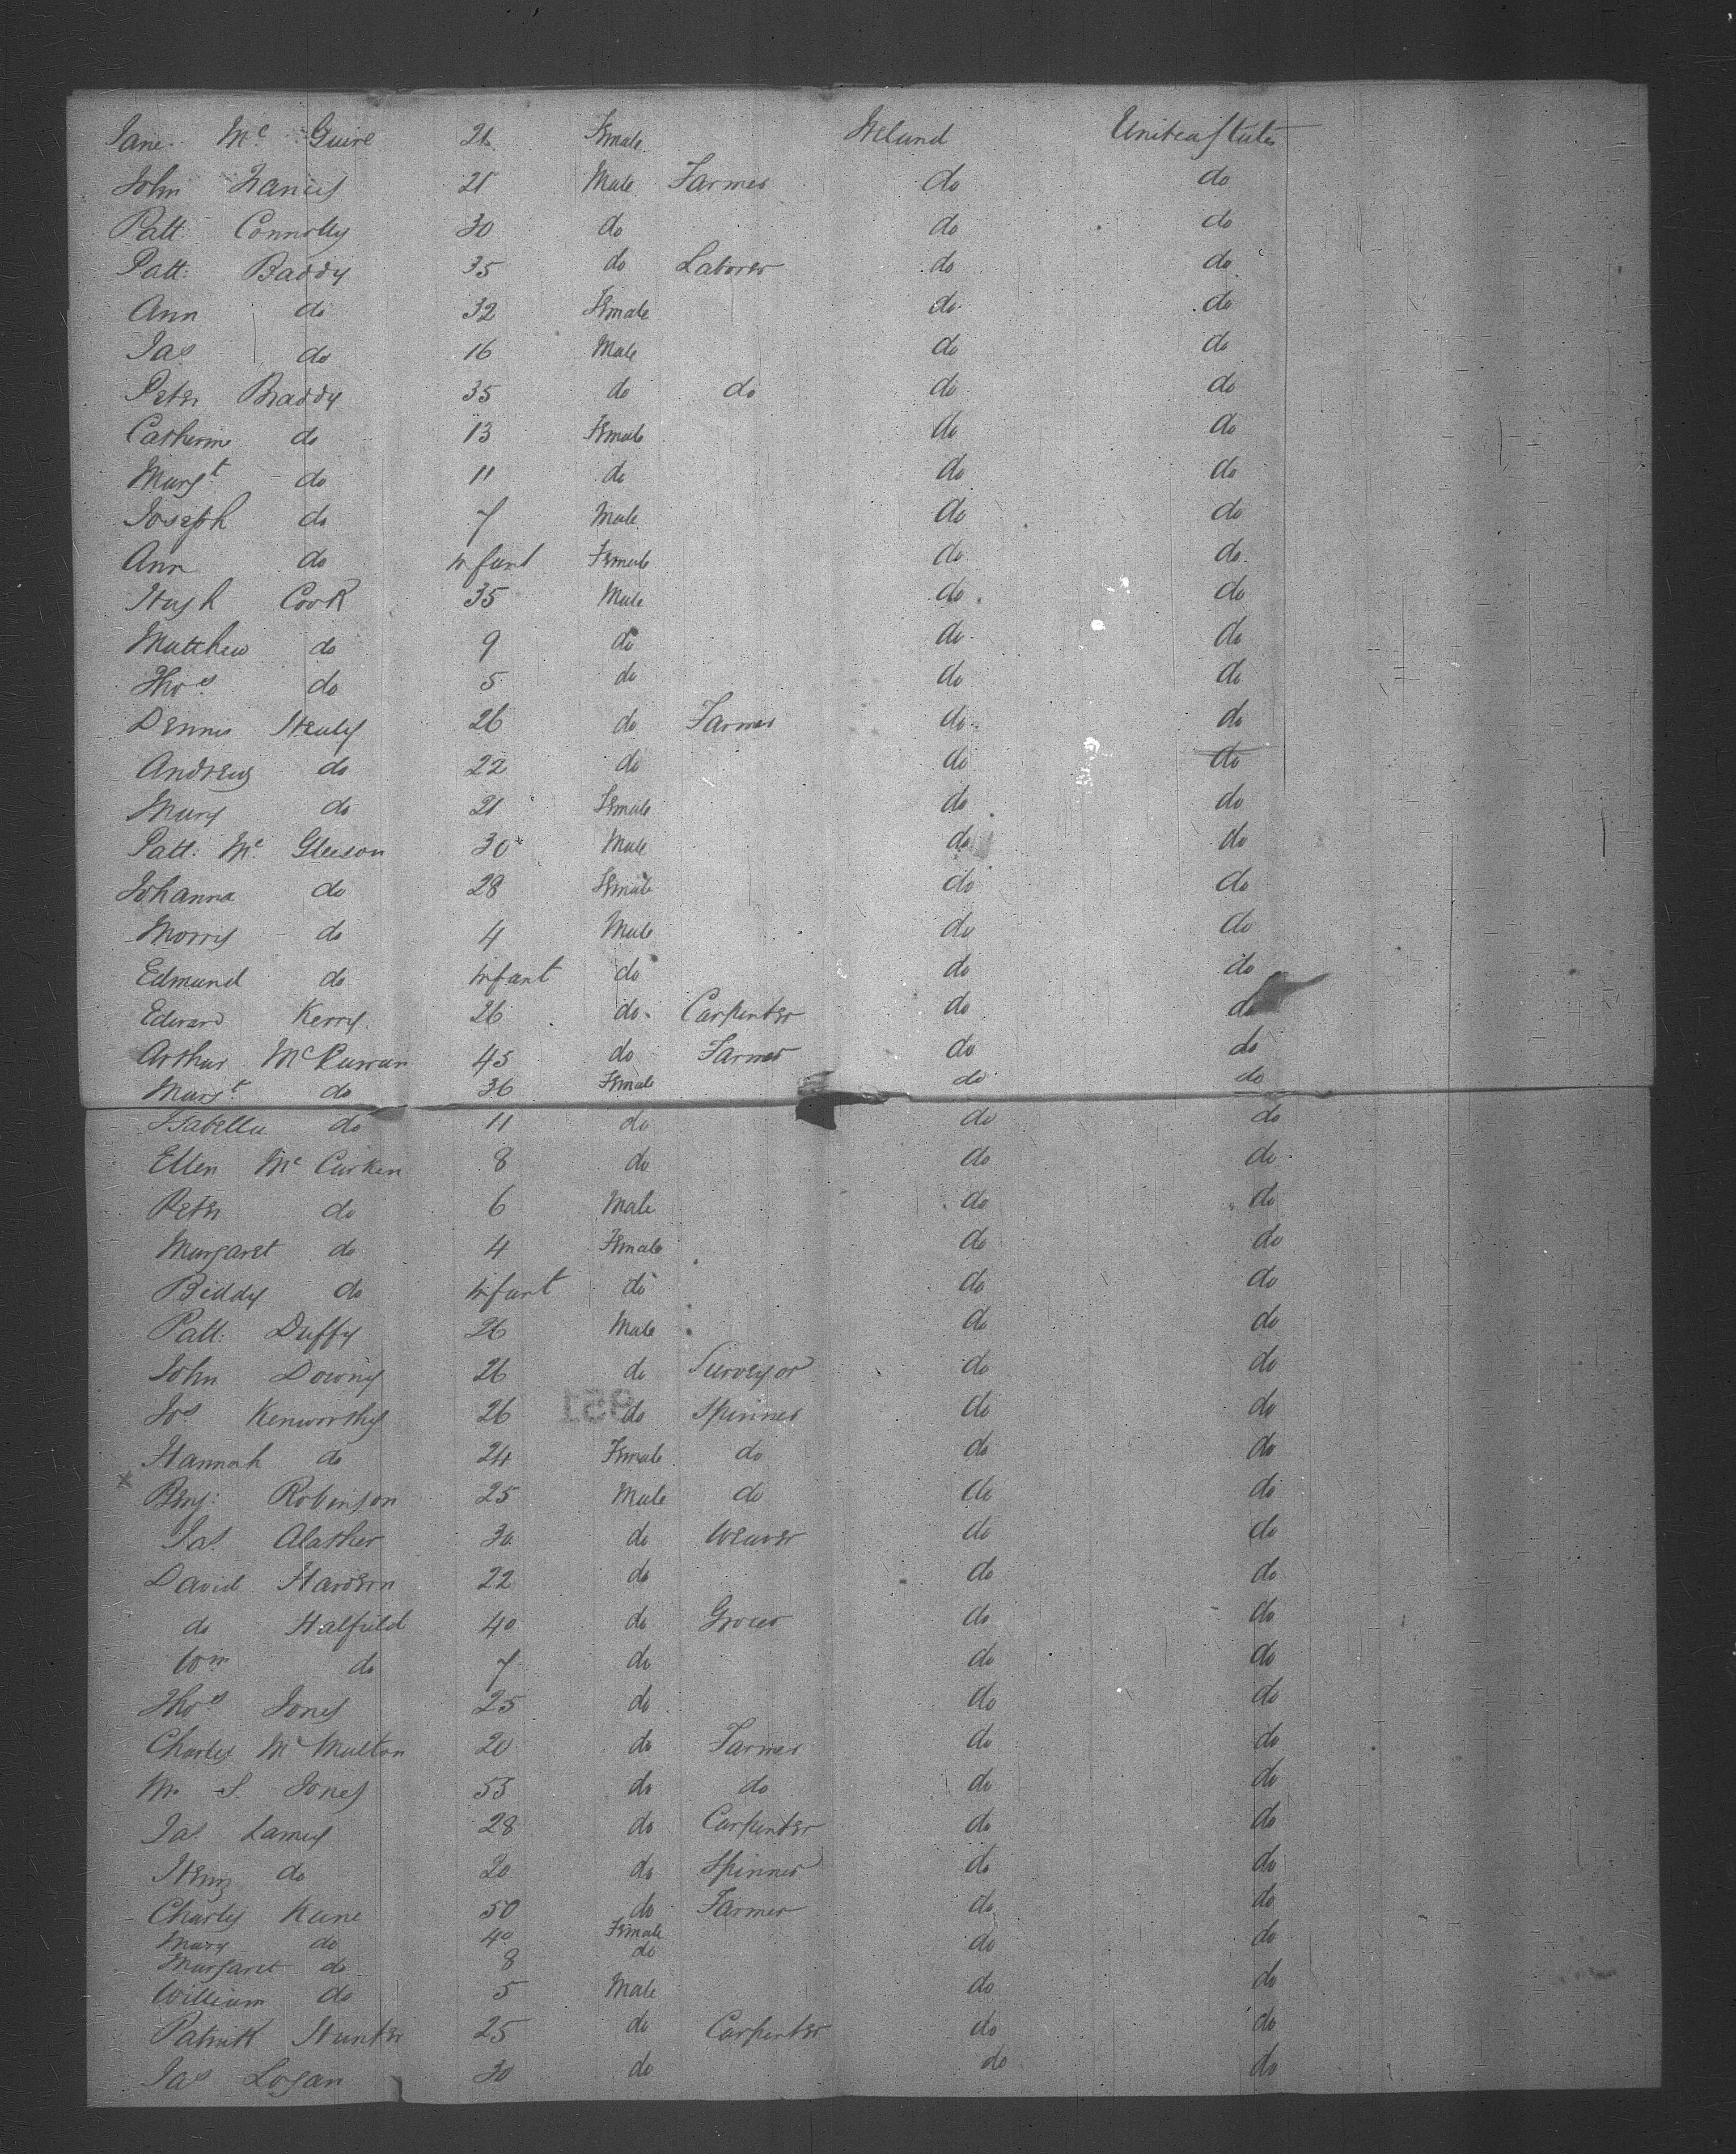 Jane Mc Guire 26 Female Ireland United States
John Francis 21 Male Farmer do do
Patt: Connolly 30 do do do
Patt: Baddy 35 do Laborer do do
Ann do 32 Female do do
Jas do 16 Male do do
Peter Braddy 35 do do do do
Catherine do 13 Female do do
Margt do 11 do do do
Joseph do 7 Male do do
Ann do Infant Female do do
Hugh Cook 35 Male do do
Matthew do 9 do do do
Thos do 5 do do do
Dennis Healy 26 do Farmer do do
Andrew do 22 do do do
Mary do 21 Female do do
Patt: Mc Gleeson 30 Male do do
Johanna do 28 Female do do
Morris do 4 Male do do
Edmund do Infant do do do
Edward Kerry 26 do Carpenter do do
Arthur 45 do Farmer do do
Margt do 36 Female do do
Isabella do 11 do do do
Ellen Mc Curken 8 do do do
Peter do 6 Male do do
Margaret do 4 Female do do
Biddy do Infant do do do
Patt: Duffy 26 Male do do
John Downy 26 do Surveyor do do
Jos Kenworthy 26 do Spinner do do
951
Hannah do 24 Female do do do
x Benj: Robinson 25 Male do do do
Jas Alather 30 do Weaver do do
David 22 do do do
do Halfield 40 do Grocer do do
Wm do 7 do do do
Thos Jones 25 do do do
Charles Mc Multon 20 do Farmer do do
S. Jones 53 do do do do
Jas Lamey 28 do Carpenter do do
Henry do 20 do Spinner do do
Charles Kane 50 do Farmer do do
Mary do 40 Female do do
Margaret do 8 do
William do 5 Male do do
Patrick Hunter 25 do Carpenter do do
Jas Logan 30 do do do